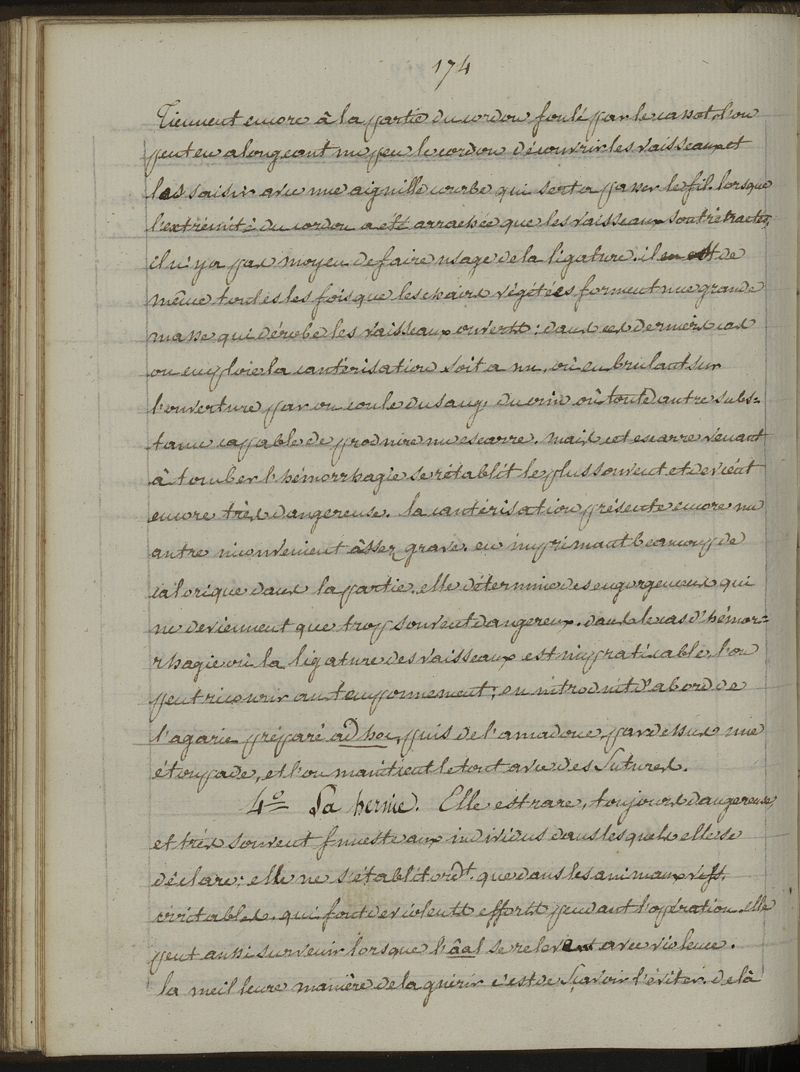 174
tiennent encore à la partie du cordon foulé par le cassot, l'on
peut en alongeant un peu le cordon découvrir les vaisseaux et
les saisir avec une aiguille courbe qui sert a passer le fil. lorsque
l'extrémité du cordon a eté arrachée que les vaisseaux sont rétractés,
il n'y a pas moyen de faire usage de la ligature. il en est de
même toutes les fois que les chairs végétées forment une grande
masse qui dérobe les vaisseaux ouverts: dans ces derniers cas
on emploie la cautérisation soit a nu, où en brulant sur
l'ouverture par ou coule du sang, du crin où toute autre subs=
tance capable de produire une escarre. mais cet escarre venant
à tomber l'hémorrhagie se rétablit le plus souvent et devient
encore très dangereuse. la cautérisation présente encore un
autre inconvenient âssez grave. en imprimant beaucoup de
calorique dans la partie. elle détermine des engorgemens qui
ne deviennent que trop souvent dangereux. dans le cas d'hémor=
rhagie où la ligature des vaisseaux est impraticable, l'on
peut ricourir au temponnement; on introduit d'abord de
l'agaric préparé ad hoc, puis de l'amadoue, par dessus une
étoupade, et l'on maintient le tout avec des Sutures.
4° La hernie. Elle est rare, toujours dangereuse,
et très souvent funeste aux individus dans lesquels elle se
déclare; elle ne s'établit ordt. que dans les animaux vifs,
irritables, qui font de violents efforts pendant l'opération. elle
peut aussi survenir lorsque l'âal se relevant avec violence.
la meilleure manière de la guérir c'est de Sçavoir l'éviter. de là